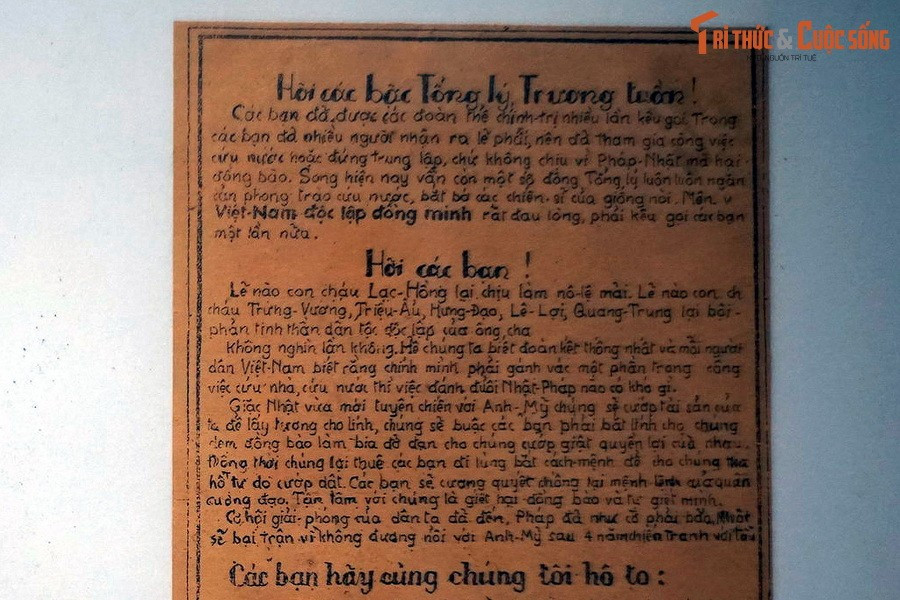 TRI THỨC & CUỘC SỐNG
NGUỒN TRI TUỆ
Hỡi các bậc Tổng lý, Trương tuần!
Các bạn đã được các đoàn thể chính-trị nhiều lần kêu gọi. Trong
các bạn đã nhiều người nhận ra lẽ phải, nên đã tham gia công việc
cứu nước hoặc đứng trung lập, chứ không chịu vì Pháp-Nhật mà hại
đồng bào. Song hiện nay vẫn còn một số đông Tổng lý luôn luôn ngăn
cản phong trào cứu nước, bắt bớ các chiến-sĩ của giống nòi. Nên
Việt-Nam độc lập đồng minh rất đau lòng, phải kêu gọi các bạn
một lần nữa.
Hỡi các bạn !
Lẽ nào con cháu Lạc-Hồng lại chịu làm nô-lệ mãi. Lẽ nào con ch
cháu Trưng-Vương, Triệu-Ẩu, Hưng-Đạo, Lê-Lợi, Quang-Trung lại bội-
phản tinh thần dân tộc độc lập của ông, cha
Không nghìn lần không. Hễ chúng ta biết đoàn kết thống nhất và mỗi người
dân Việt-Nam biết rằng chính mình phải gánh vác một phần trong công
việc cứu nhà, cứu nước thì việc đánh đuổi Nhật-Pháp nào có khó gì.
Giặc Nhật vừa mới tuyên chiến với Anh-Mỹ chúng sẽ cướp tài sản của
ta để lấy lương cho lính, chúng sẽ buộc các bạn phải bắt lính cho chúng
đem đồng bào làm bia đỡ đạn cho chúng cướp giật quyền lợi của nhau.
Đồng thời chúng lại thuê các bạn đi lùng bắt cách-mệnh để cho chúng tha
hồ tự do cướp đất. Các bạn sẽ cương quyết chống lại mệnh-lệnh của quân
cường đạo. Tận tâm với chúng là giết hại đồng bào và tự giết mình.
Cơ hội giải-phóng của dân ta đã đến, Pháp đã như cỏ phải bão, Nhật
sẽ bại trận vì không đương nổi với Anh-Mỹ sau 4 năm chiến tranh với tàu
Các bạn hãy cùng chúng tôi hô to :